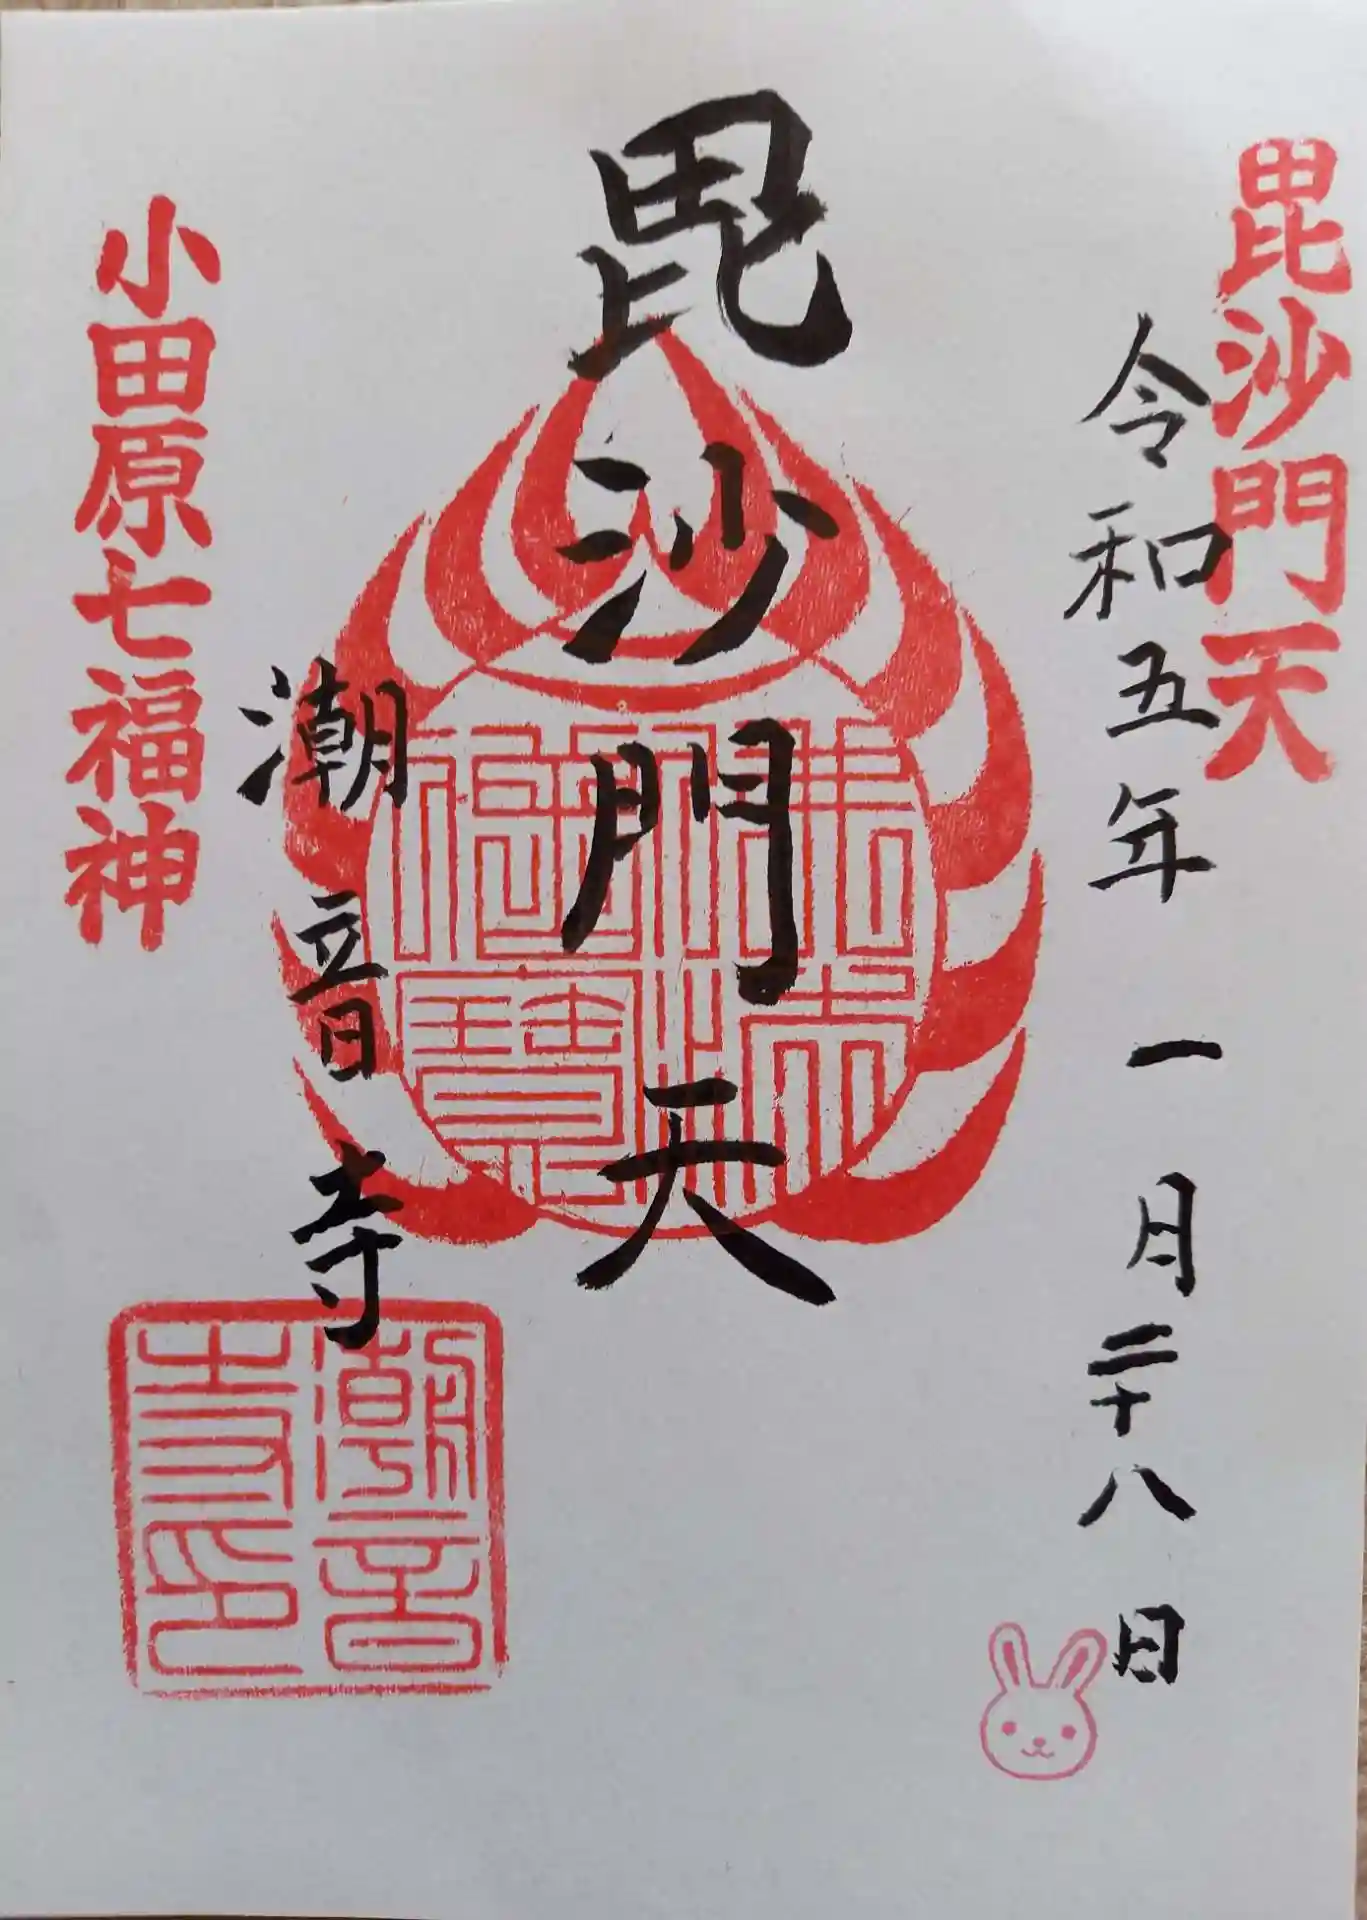 毘沙門天
令和五年 一月二十八日
毘沙門天
佛法僧寶
潮音寺
小田原七福神
潮音寺印